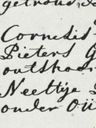 getroud, 
Cornelis
Pieters G
Neeltije
onder Ou